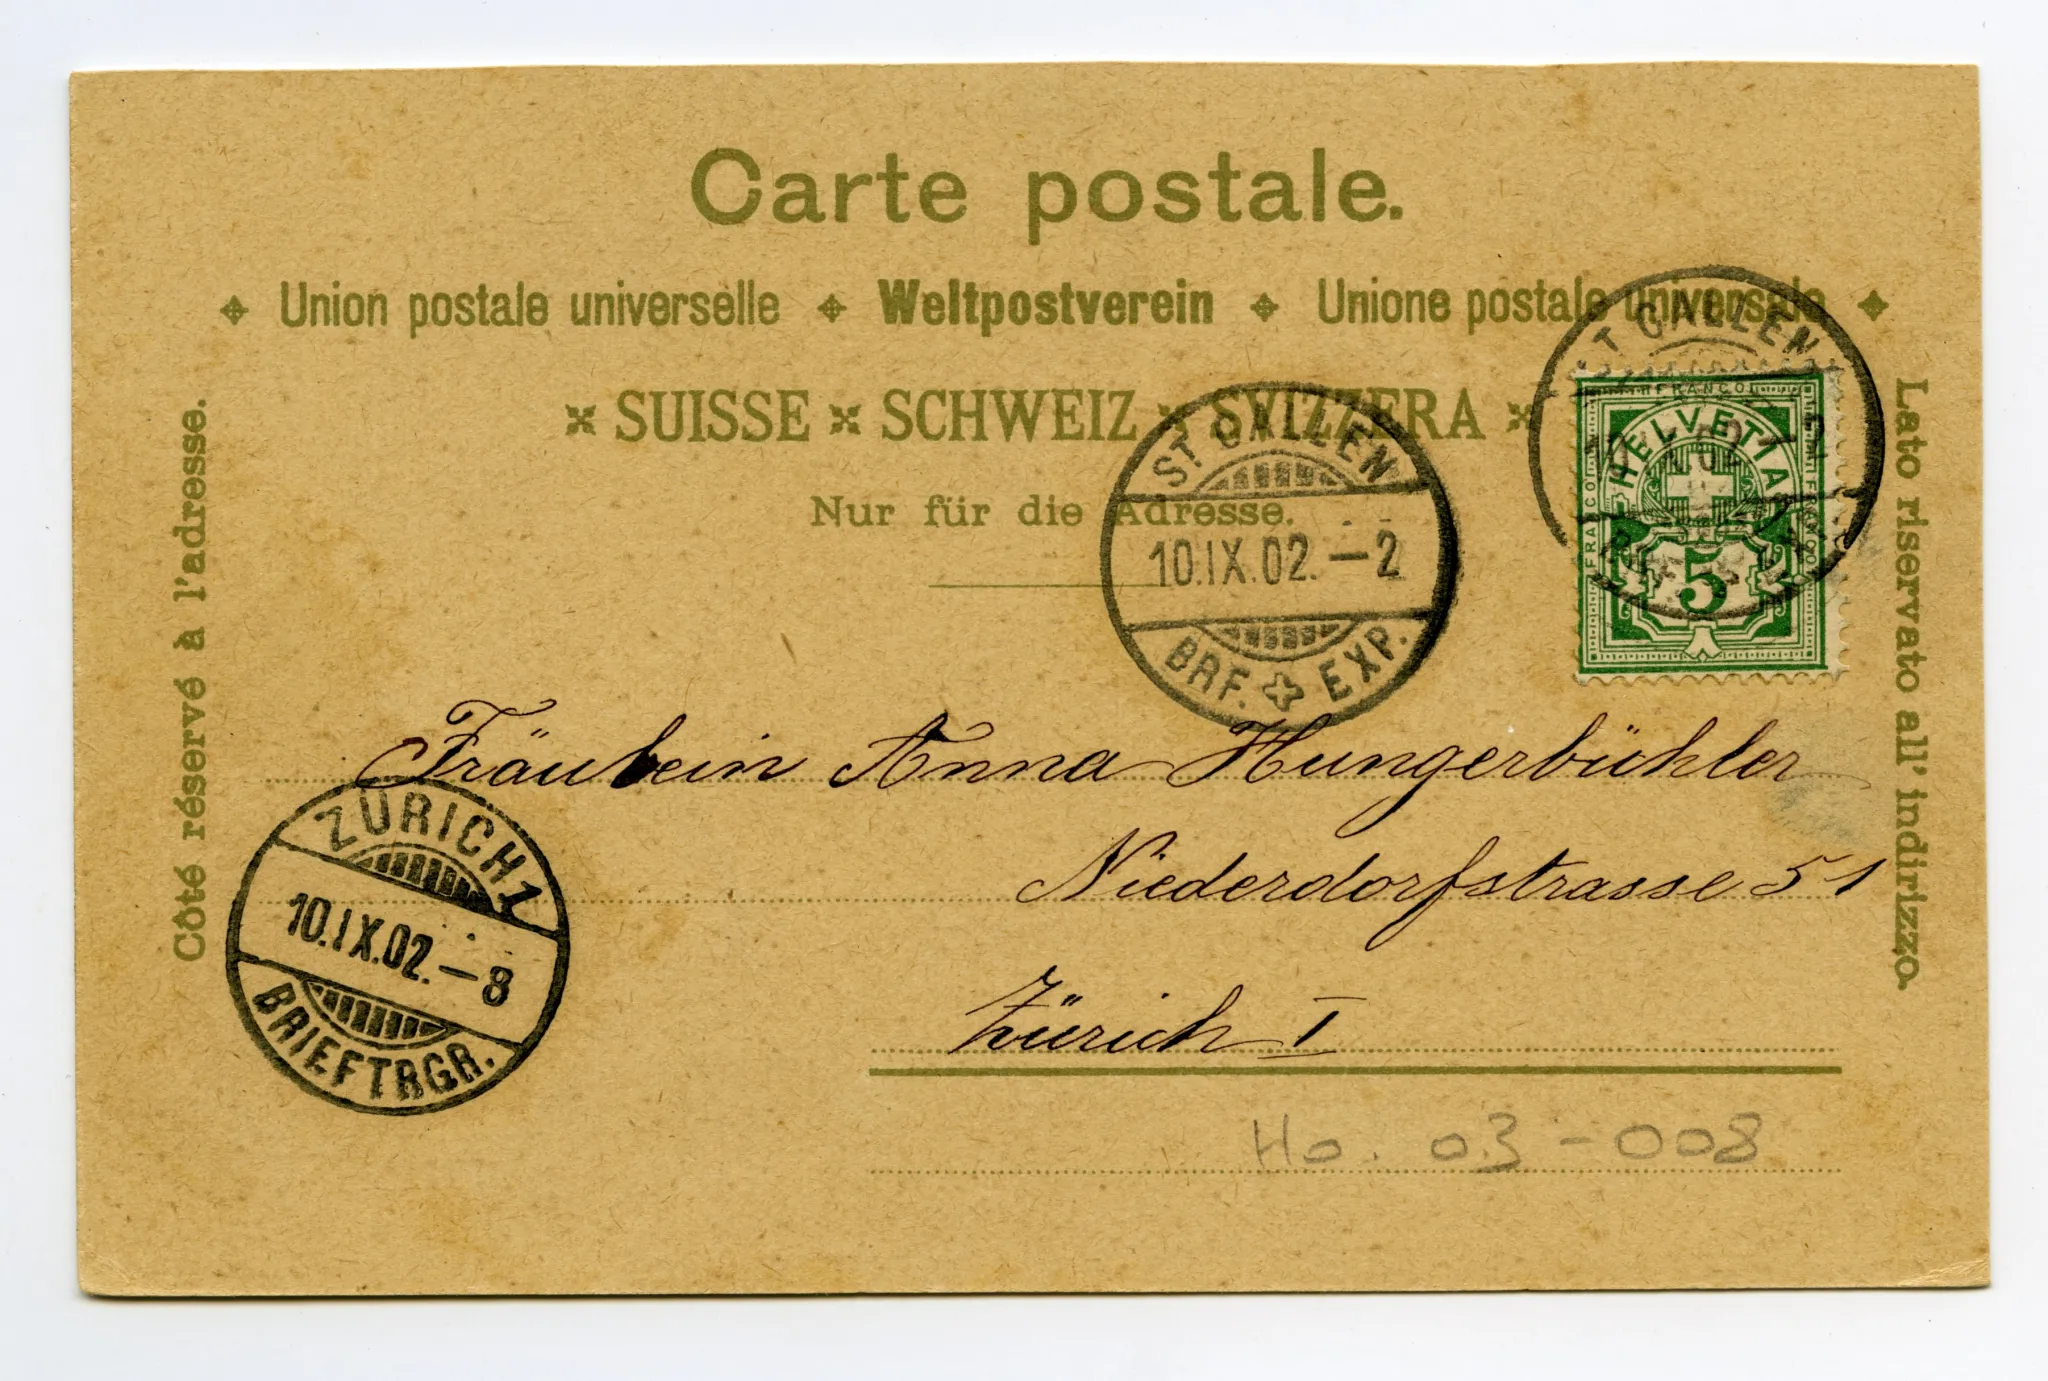 Carte postale.
Union postale universelle Weltpostverein Unione postale universale
SUISSE SCHWEIZ SVIZZERA
Nur für die Adresse.
Côté réservé à l'adresse.
Lato riservato all' indirizzo.
ST. GALLEN
10.IX.02.-2
BRF. EXP.
ST. GALLEN
FRANCO
HELVETIA
FRANCO
FRANCO
5
Fräulein Anna Hungerbühler
Niederdorfstrasse 51
Zürich I
ZÜRICH 1
10.IX.02.-8
BRIEFTRGR.
Ho. 03-008